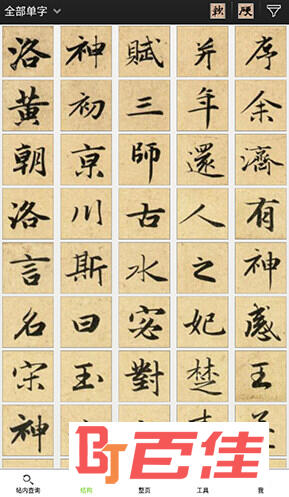 全部单字
洛神賦并序
黄初三年余
朝京師還濟
洛川古人有
言斯水之神
名曰宓妃感
宋玉對楚王
神
BJ百佳
帖内查询 结构 整页 工具 我